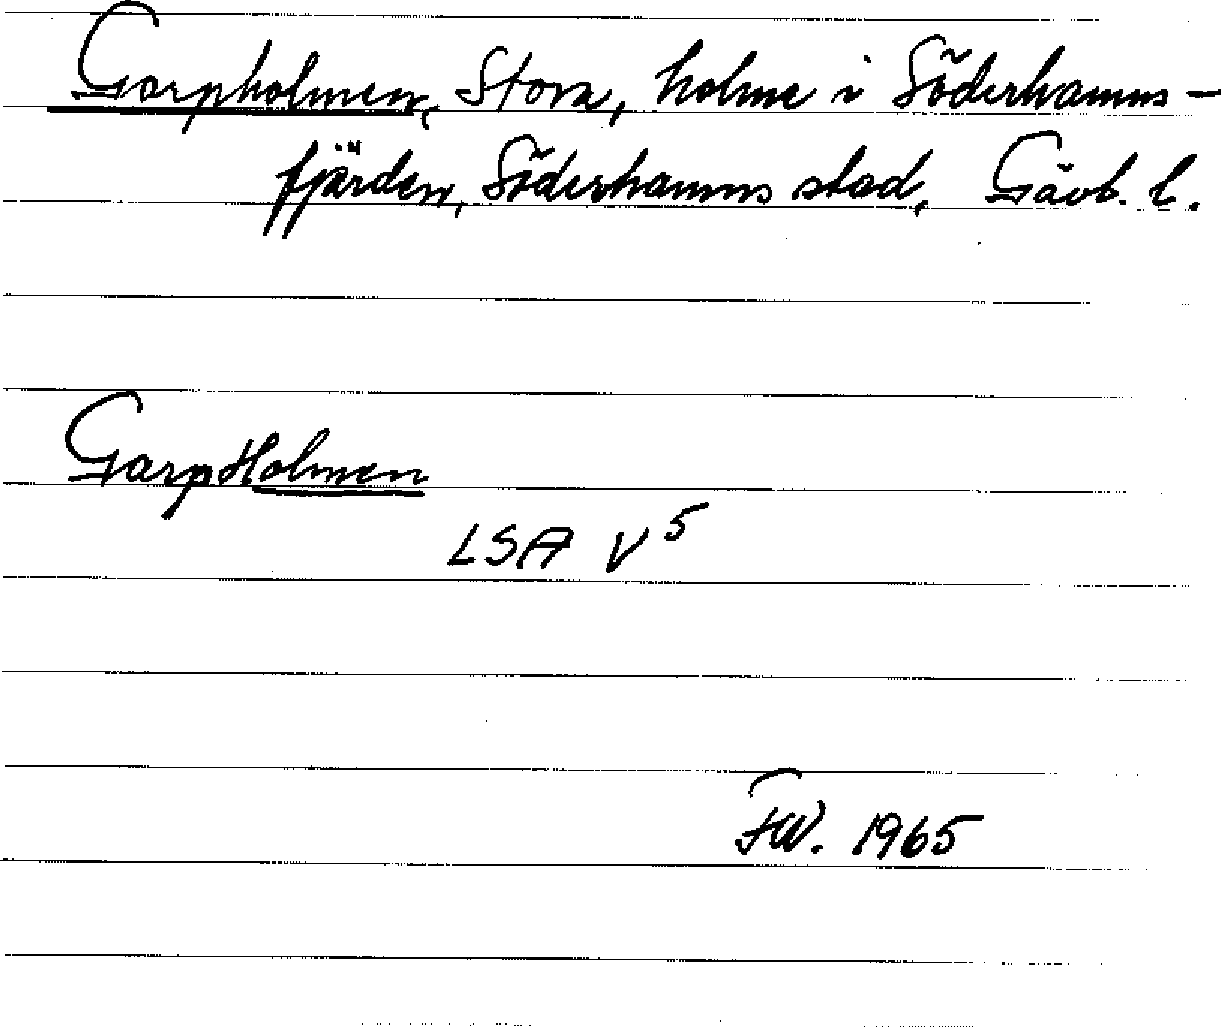 Garpholmen, Stora, holme i Söderhamns-
fjärden, Söderhamns stad, Gävb. l.
GarpHolmen
LSA V⁵
FW. 1965